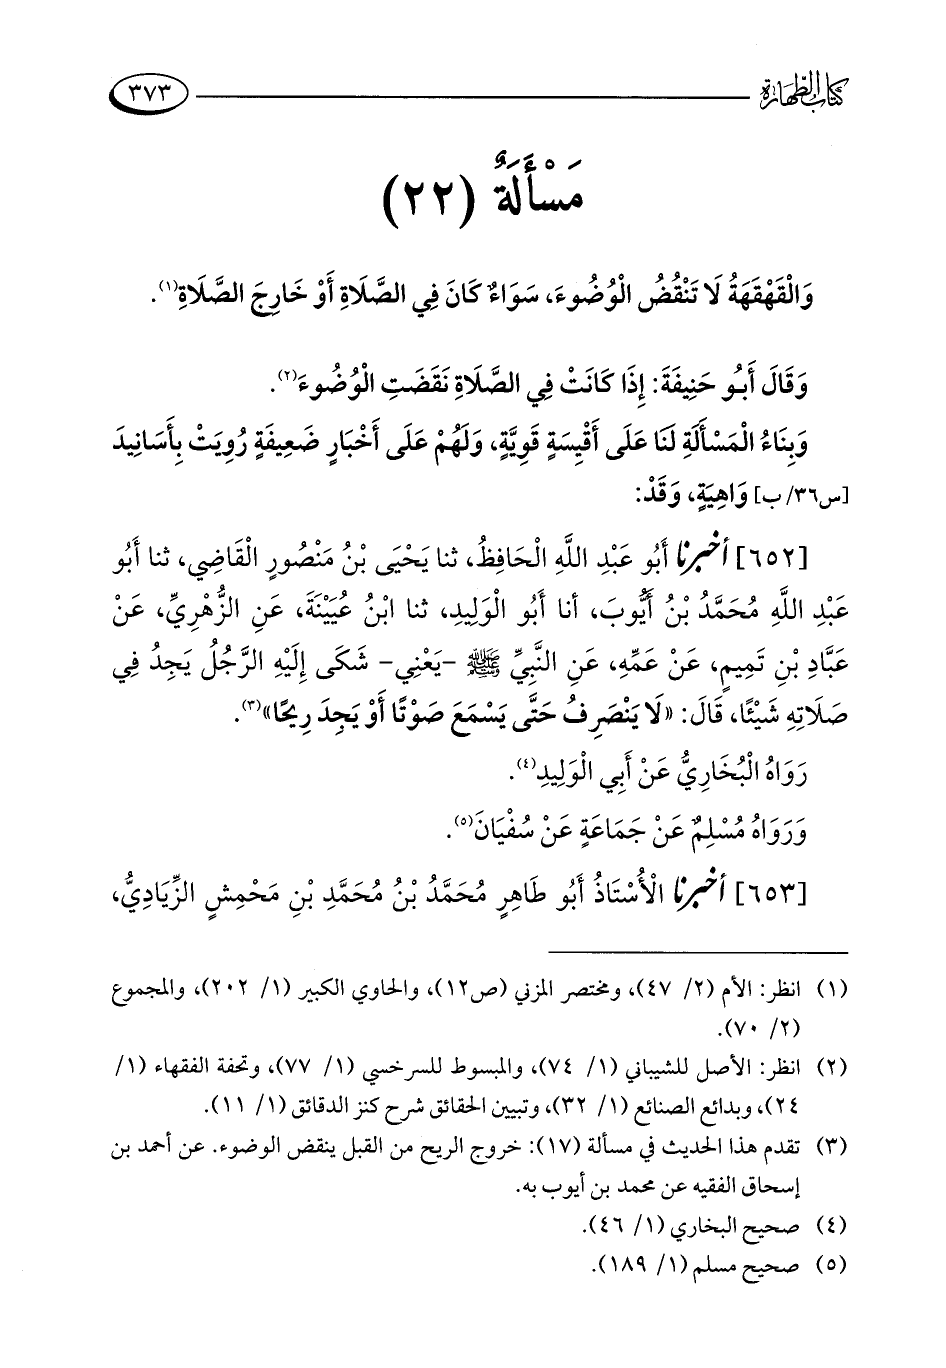 كتاب الطهارة ٣٧٣
مَسْأَلَةٌ (٢٢)
وَالْقَهْقَهَةُ لَا تَنْقُضُ الْوُضُوءَ، سَوَاءٌ كَانَ فِي الصَّلَاةِ أَوْ خَارِجَ الصَّلَاةِ(١).
وَقَالَ أَبُو حَنِيفَةَ: إِذَا كَانَتْ فِي الصَّلَاةِ نَقَضَتِ الْوُضُوءَ(٢).
وَبِنَاءُ الْمَسْأَلَةِ لَنَا عَلَى أَقْيِسَةٍ قَوِيَّةٍ، وَلَهُمْ عَلَى أَخْبَارٍ ضَعِيفَةٍ رُوِيَتْ بِأَسَانِيدَ
[س٣٦/ ب] وَاهِيَةٍ، وَقَدْ:
[٦٥٢] أخبرنا أَبُو عَبْدِ اللَّهِ الْحَافِظُ، ثنا يَحْيَى بْنُ مَنْصُورٍ الْقَاضِي، ثنا أَبُو
عَبْدِ اللَّهِ مُحَمَّدُ بْنُ أَيُّوبَ، أنا أَبُو الْوَلِيدِ، ثنا ابْنُ عُيَيْنَةَ، عَنِ الزُّهْرِيِّ، عَنْ
عَبَّادِ بْنِ تَمِيمٍ، عَنْ عَمِّهِ، عَنِ النَّبِيِّ ﷺ -يَعْنِي- شَكَى إِلَيْهِ الرَّجُلُ يَجِدُ فِي
صَلَاتِهِ شَيْئًا، قَالَ: «لَا يَنْصَرِفُ حَتَّى يَسْمَعَ صَوْتًا أَوْ يَجِدَ رِيحًا»(٣).
رَوَاهُ الْبُخَارِيُّ عَنْ أَبِي الْوَلِيدِ(٤).
وَرَوَاهُ مُسْلِمٌ عَنْ جَمَاعَةٍ عَنْ سُفْيَانَ(٥).
[٦٥٣] أخبرنا الْأُسْتَاذُ أَبُو طَاهِرٍ مُحَمَّدُ بْنُ مُحَمَّدِ بْنِ مَحْمِشٍ الزِّيَادِيُّ،
(١) انظر: الأم (٢/ ٤٧)، ومختصر المزني (ص١٢)، والحاوي الكبير (١/ ٢٠٢)، والمجموع
(٢/ ٧٠).
(٢) انظر: الأصل للشيباني (١/ ٧٤)، والمبسوط للسرخسي (١/ ٧٧)، وتحفة الفقهاء (١/
٢٤)، وبدائع الصنائع (١/ ٣٢)، وتبيين الحقائق شرح كنز الدقائق (١/ ١١).
(٣) تقدم هذا الحديث في مسألة (١٧): خروج الريح من القبل ينقض الوضوء. عن أحمد بن
إسحاق الفقيه عن محمد بن أيوب به.
(٤) صحيح البخاري (١/ ٤٦).
(٥) صحيح مسلم (١/ ١٨٩).